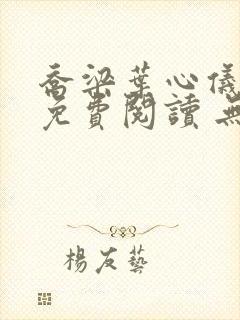 喬梁葉心儀
免費閱讀 無
楊友藝